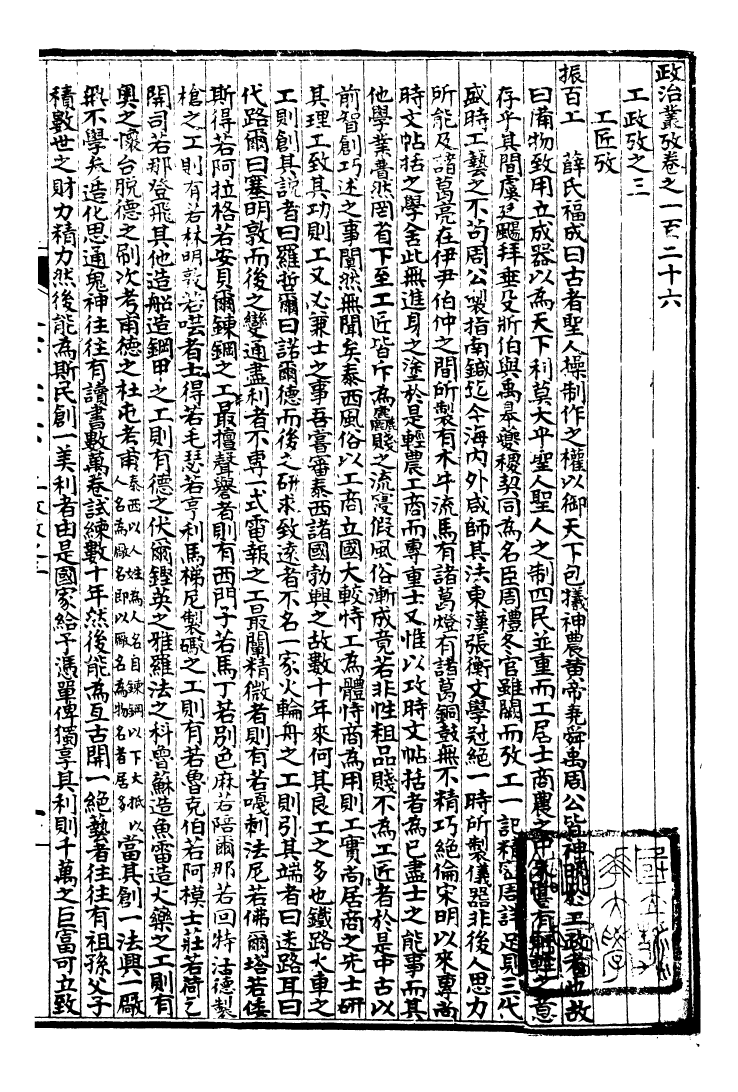 政治叢攷卷之一百二十六
工政攷之三
工匠攷
振百工　薛氏福成曰古者聖人操制作之權以御天下包犧神農黄帝堯舜禹周公皆神明於工政者也故
曰備物致用立成器以為天下利莫大乎聖人聖人之制四民並重而工居士商農之中未嘗有軒輊之意
存乎其間虞廷颺拜垂殳斨伯與禹皋夔稷契同為名臣周禮冬官雖闕而攷工一記精密周詳足見三代
盛時工藝之不苟周公製指南鍼迄今海內外咸師其法東漢張衡文學冠絕一時所製儀器非後人思力
所能及諸葛亮在伊尹伯仲之間所製有木牛流馬有諸葛燈有諸葛銅鼓無不精巧絕倫宋明以來專尚
時文帖括之學舍此無進身之塗於是輕農工商而專重士又惟以攻時文帖括者為已盡士之能事而其
他學業瞢然罔省下至工匠皆斥為麤賤之流寖假風俗漸成竟若非性粗品賤不為工匠者於是中古以
前智創巧述之事闃然無聞矣泰西風俗以工商立國大較恃工為體恃商為用則工實尚居商之先士研
其理工致其功則工又必兼士之事吾嘗審泰西諸國勃興之故數十年來何其良工之多也鐵路火車之
工則創其說者曰羅哲爾曰諾爾德而後之研求致遠者不名一家火輪舟之工則引其端者曰迷路耳曰
代路爾曰塞明敦而後之變通盡利者不專一式電報之工最闡精微者則有若嘎剌法尼若佛爾塔若倭
斯得若阿拉格若安貝爾鍊鋼之工最擅聲譽者則有西門子若馬丁若別色麻若陪爾那若回特活德製
槍之工則有若林明敦若者士得若毛瑟若亨利馬梯尼製礮之工則有若魯克伯若阿模士莊若荷乞
開司若那登飛其他造船造鋼甲之工則有德之伏爾鏗英之雅羅法之科魯蘇造魚雷造火藥之工則有
奧之懷台脫德之刷次考甫德之杜屯考甫泰西以人姓為人名自鍊鋼以下大抵以人名為廠名即以廠名為物名者居多當其創一法興一廠
無不學參造化思通鬼神往往有讀書數萬卷試練數十年然後能為亙古開一絕藝者往往有祖孫父子
積數世之財力精力然後能為斯民創一美利者由是國家給予憑單俾獨享其利則千萬之巨富可立致